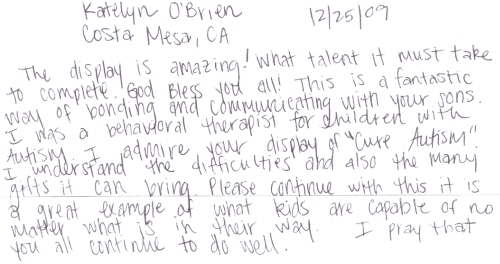 Katelyn O'Brien 12/25/09
Costa Mesa, CA
The display is amazing! What talent it must take
to complete. God Bless you all! This is a fantastic
way of bonding and communicating with your sons.
I was a behavioral therapist for children with
Autism. I admire your display of "Cure Autism".
I understand the difficulties and also the many
gifts it can bring. Please continue with this it is
a great example of what kids are capable of no
matter what is in their way. I pray that
you all continue to do well.